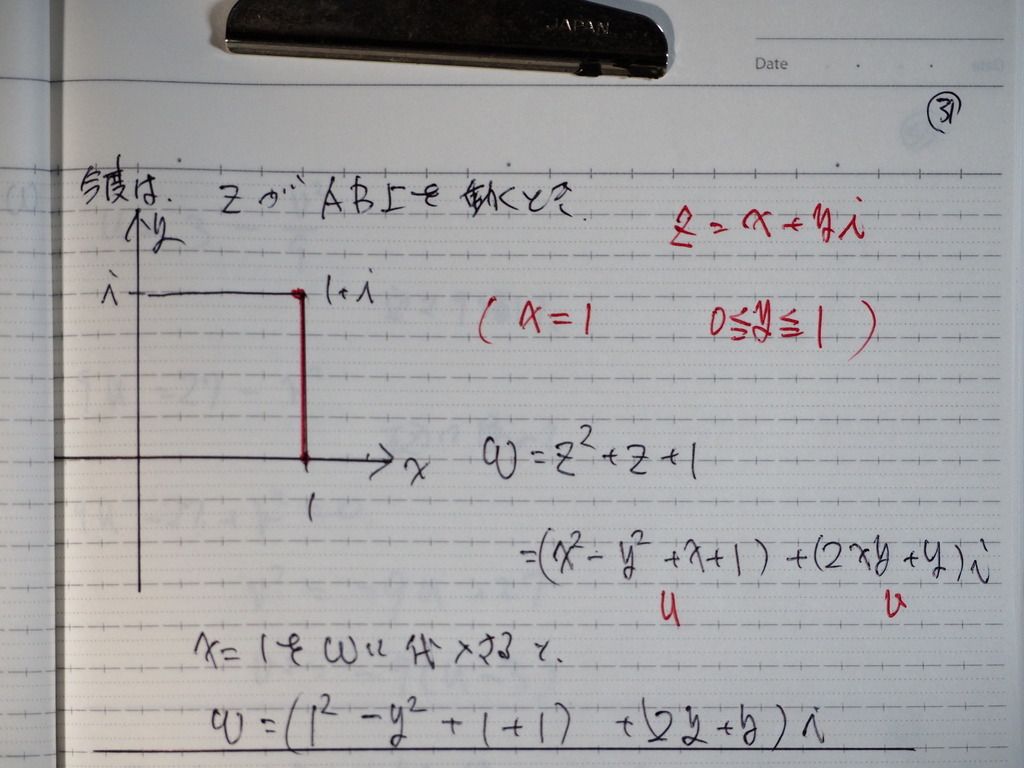 JAPAN
Date
31
今度は. zがAB上を動くとき.
y
z = x + yi
i
1+i
( x = 1 0≦y≦1 )
x
w = z² + z + 1
1
= (x² - y² + x + 1) + (2xy + y)i
u v
x = 1をwに代入すると.
w = (1² - y² + 1 + 1) + (2y + y)i